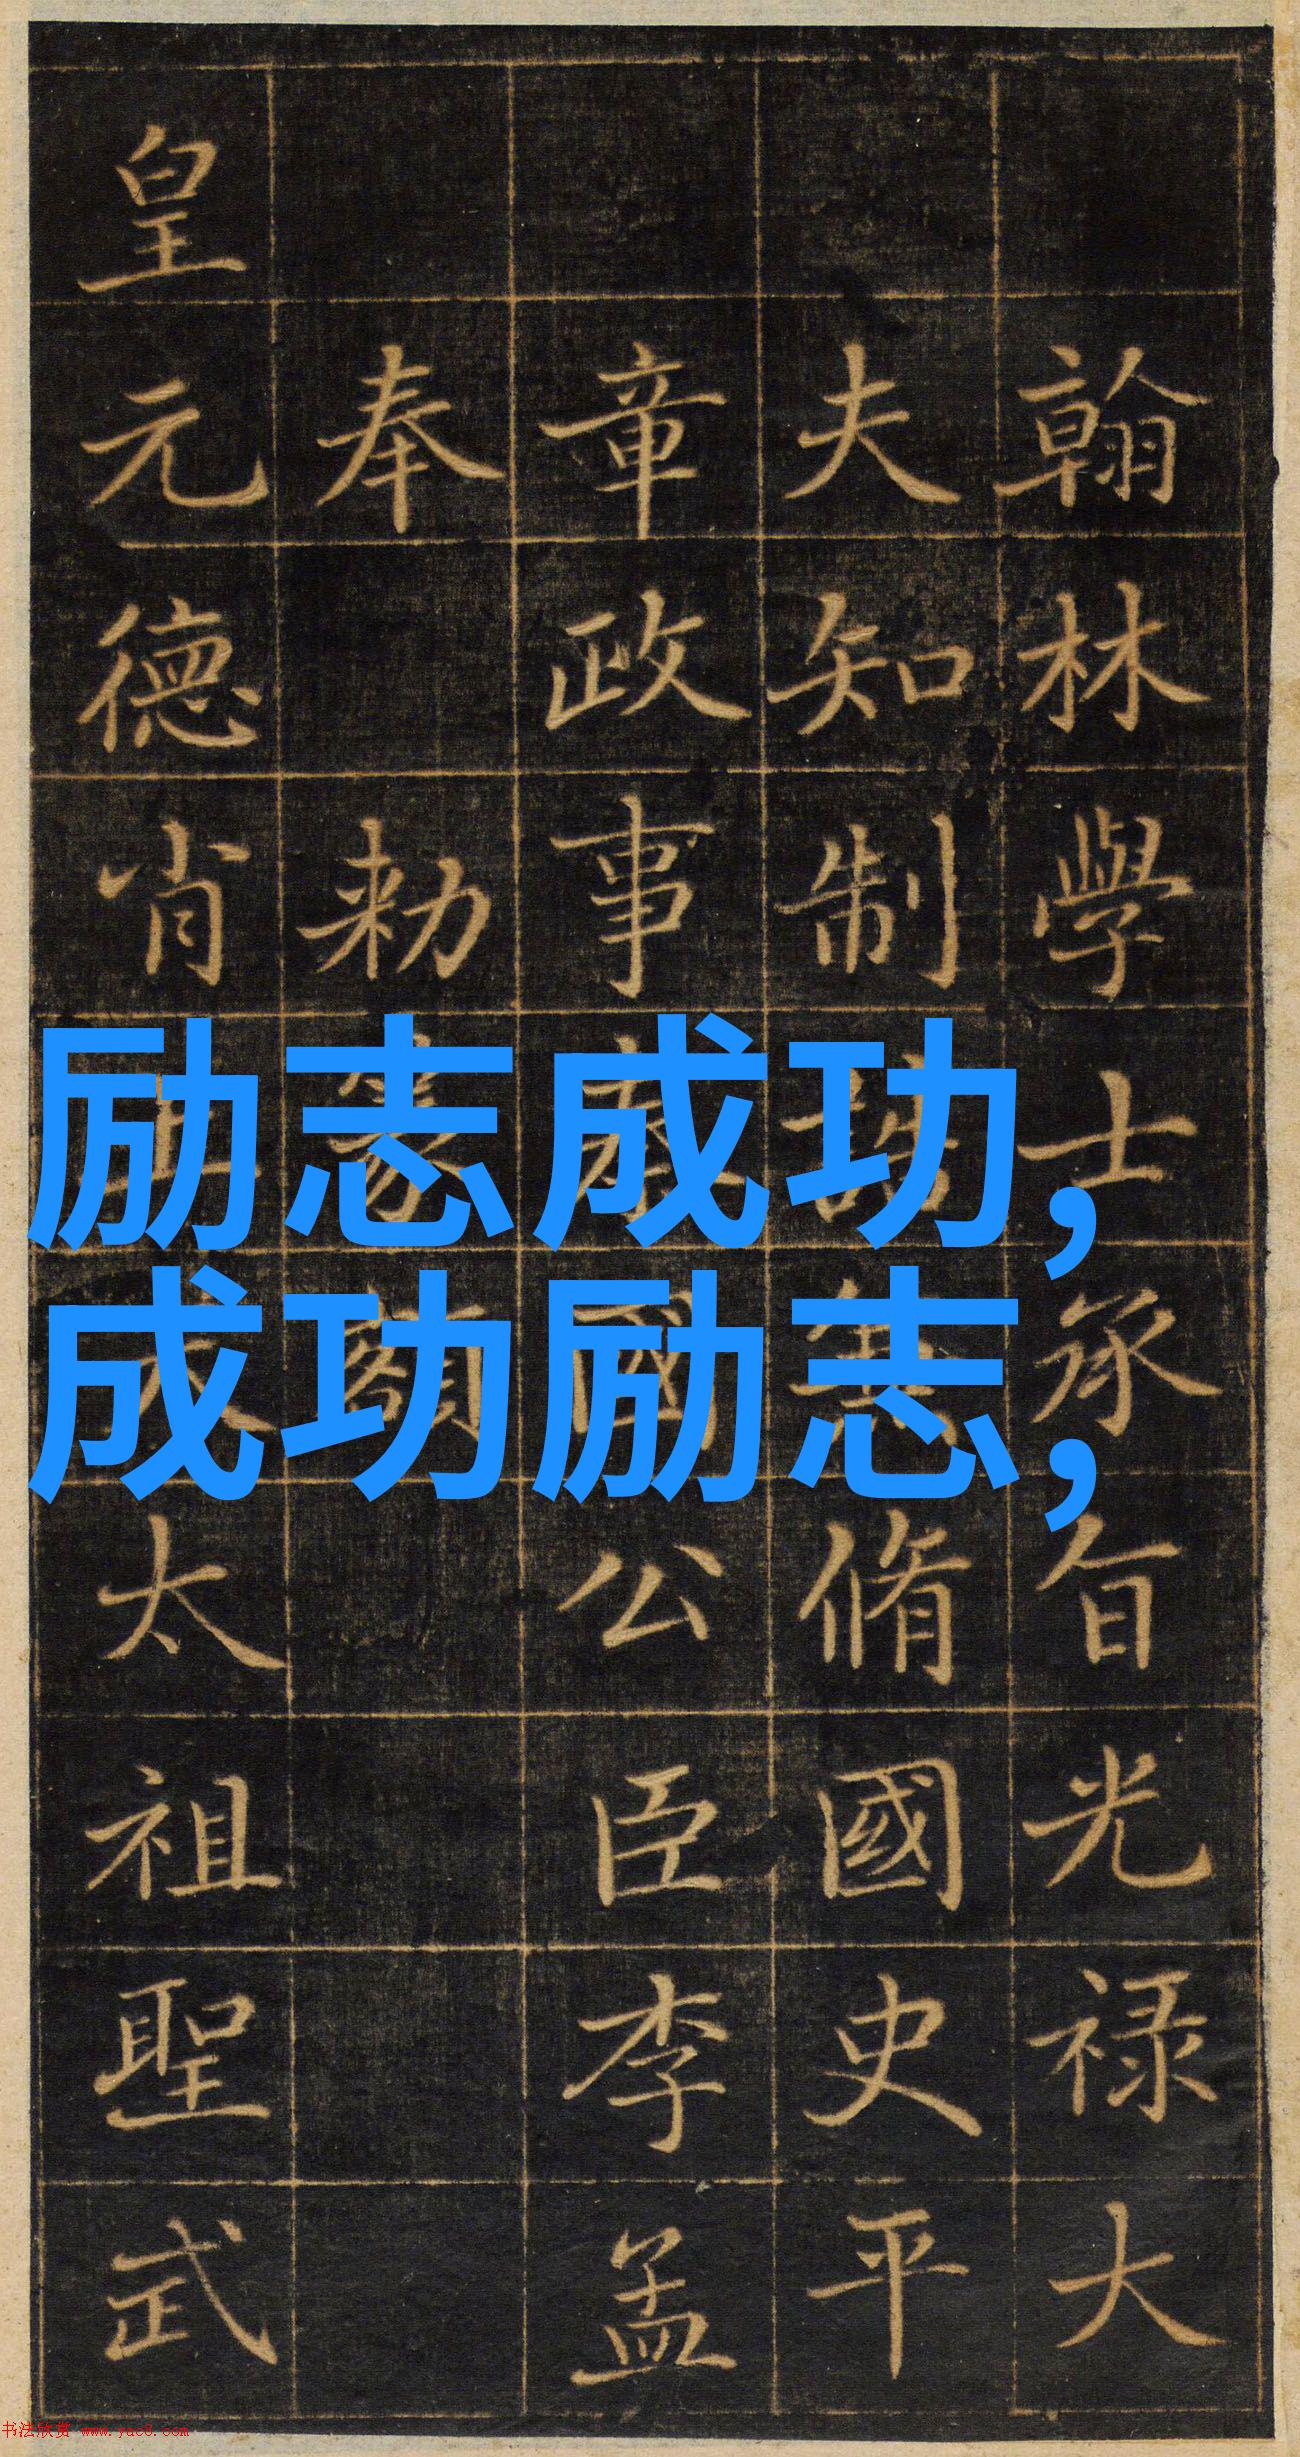 翰林學士承旨光禄大
夫知制誥兼脩國史平
章政事秦國公臣李孟
奉勑篆額
皇元德肖上天太祖聖武
励志成功,
成功励志,
书法欣赏 www.yac8.com